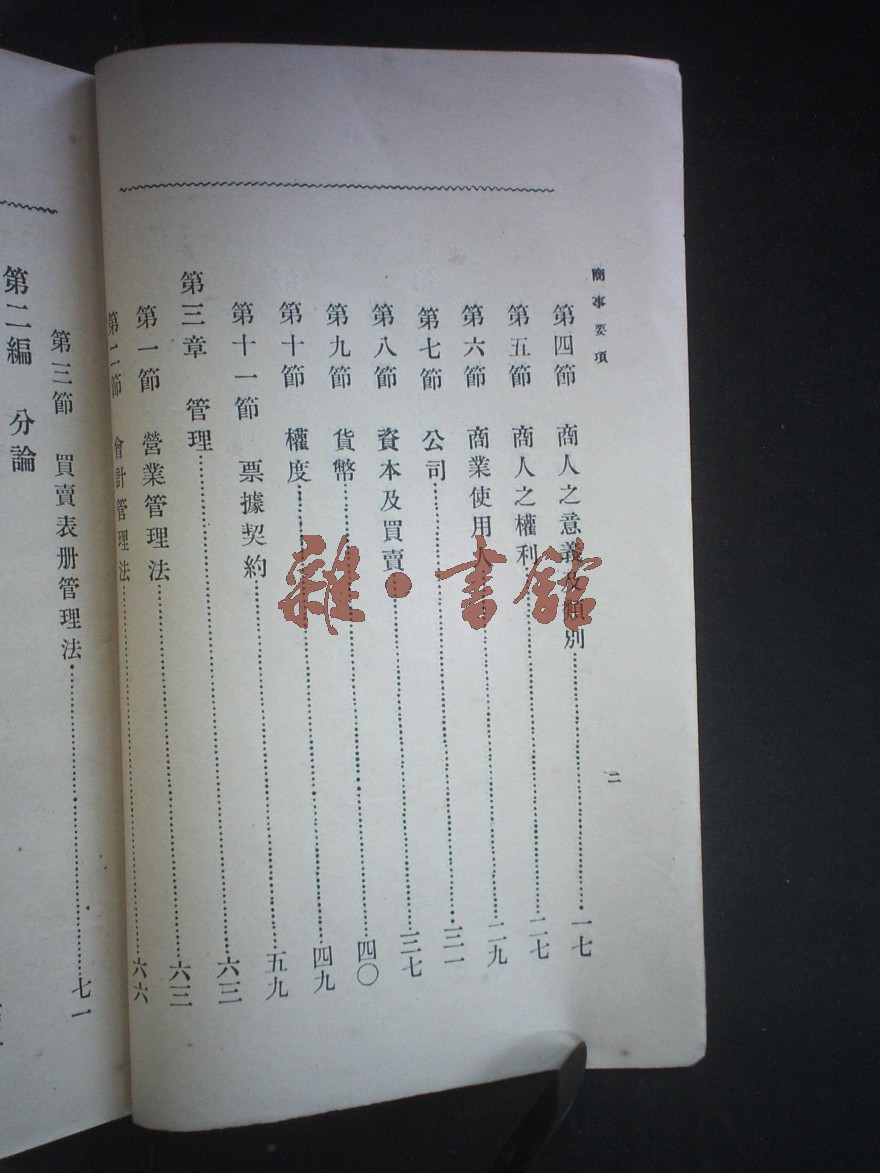 商事要項
二
第四節 商人之意義及類別 一七
第五節 商人之權利 二七
第六節 商業使用人 二九
第七節 公司 三一
第八節 資本及買賣 三七
第九節 貨幣 四〇
第十節 權度 四九
第十一節 票據契約 五九
第三章 管理 六三
第一節 營業管理法 六三
第二節 會計管理法 六六
第三節 買賣表册管理法 七一
第二編 分論
雜·書館